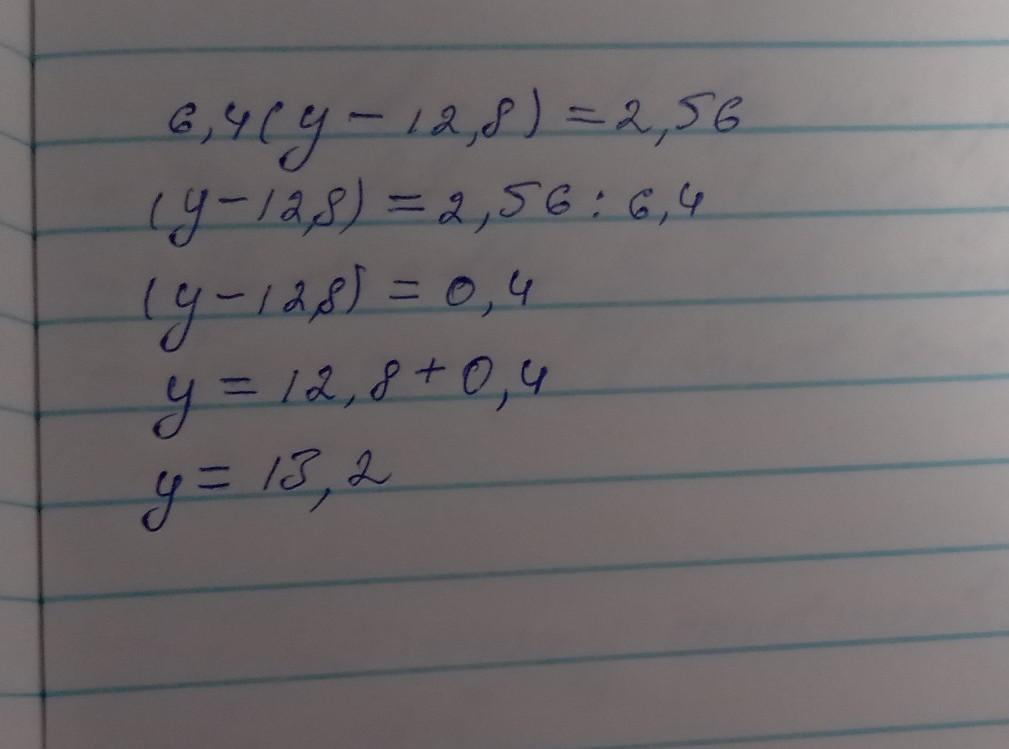 6,4(y-12,8)=2,56
(y-12,8)=2,56:6,4
(y-12,8)=0,4
y=12,8+0,4
y=13,2